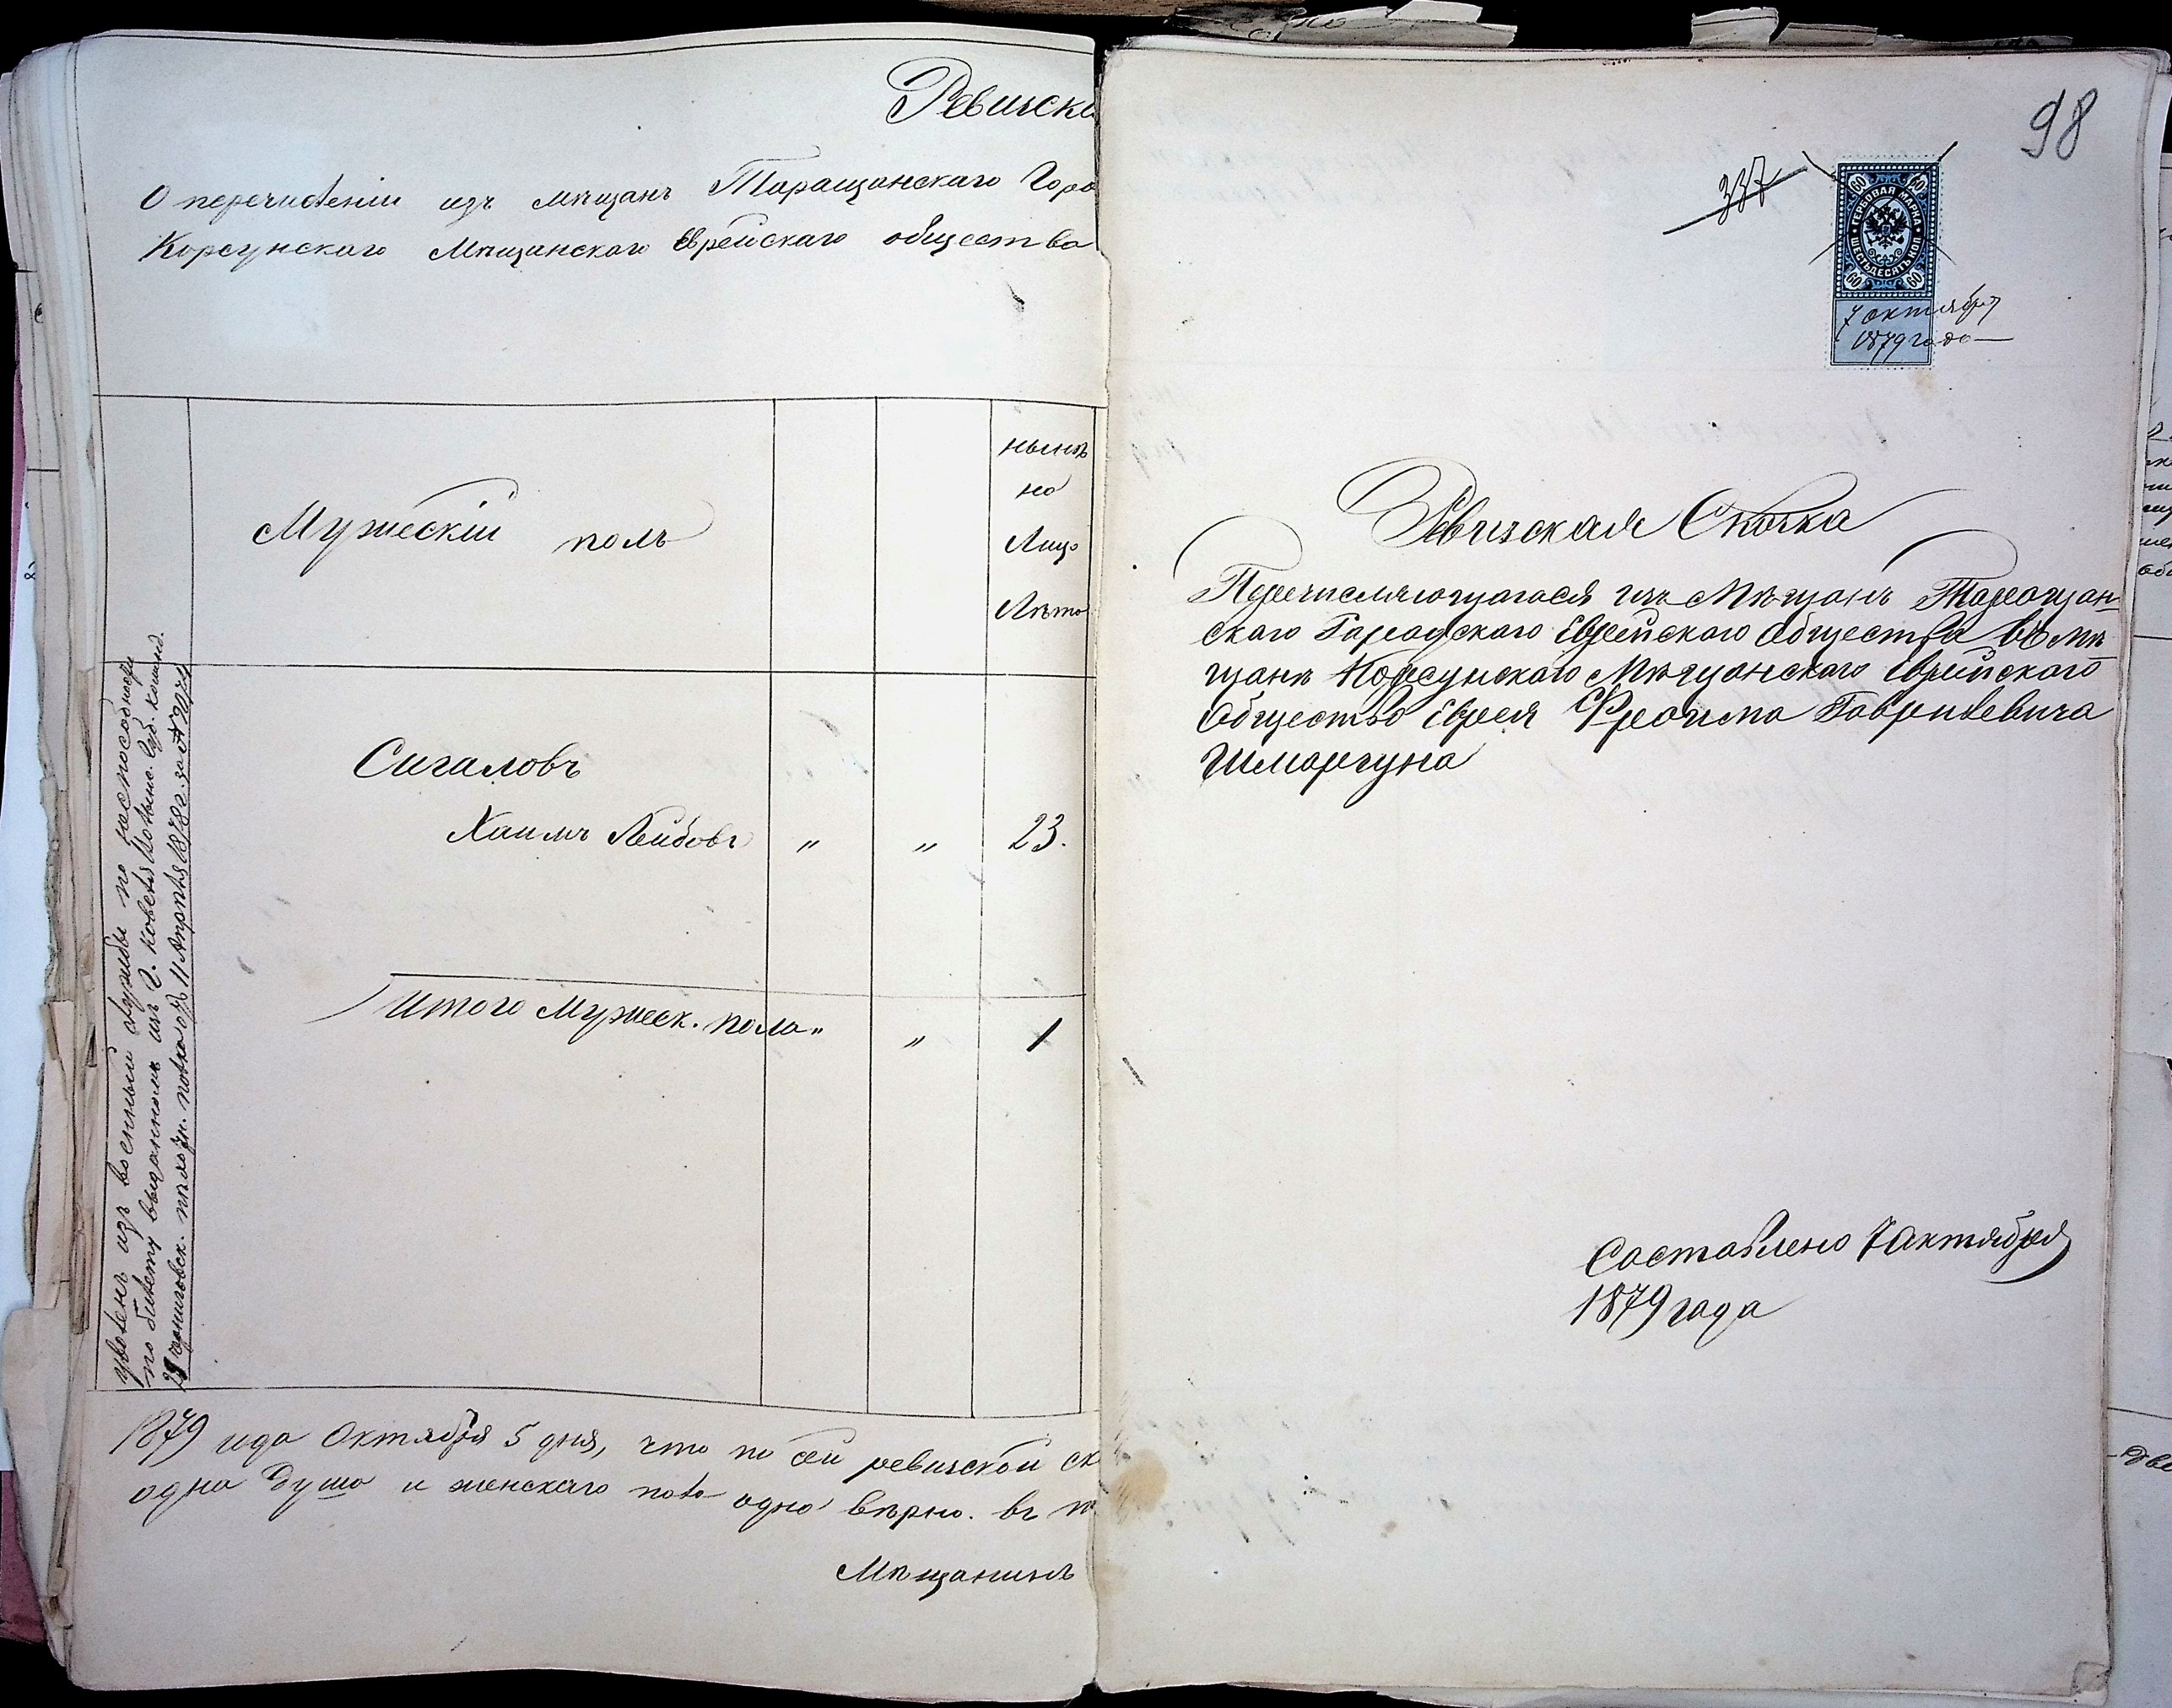 Ревизска
О перечисленіи изъ мѣщанъ Таращанскаго Горо
Корсунскаго Мѣщанскаго Еврейскаго общества
Мужескій полъ
нынѣ
на
Лицо
Лѣта
уволенъ изъ военный службы по неспособности
по билету выданномъ изъ г. Ковеля Волынс. Губ. Команд.
29 Черниговск. пѣхотн. полка отъ 11 Апрѣля 1878 г. за №
Сигаловъ
Хаимъ Лейбовъ " " 23.
Итого Мужеск. пола " " 1
1879 года Октября 5 дня, что по сей ревизской ск
одна душа и женскаго пола одно вѣрно. въ т
Мѣщанинъ
98
337
60 60
ГЕРБОВАЯ МАРКА
ШЕСТЬДЕСЯТЪ КОП.
60 60
7 октября
1879 года
Ревизская Сказка
Перечисляющагося изъ Мѣщанъ Таращан
скаго Городскаго Еврейскаго Общества въ мѣ
щане Корсунскаго Мѣщанскаго Еврейскаго
Общество Еврея Фроима Гаврилевича
Шмаргуна
Составлено 7 Октября
1879 года